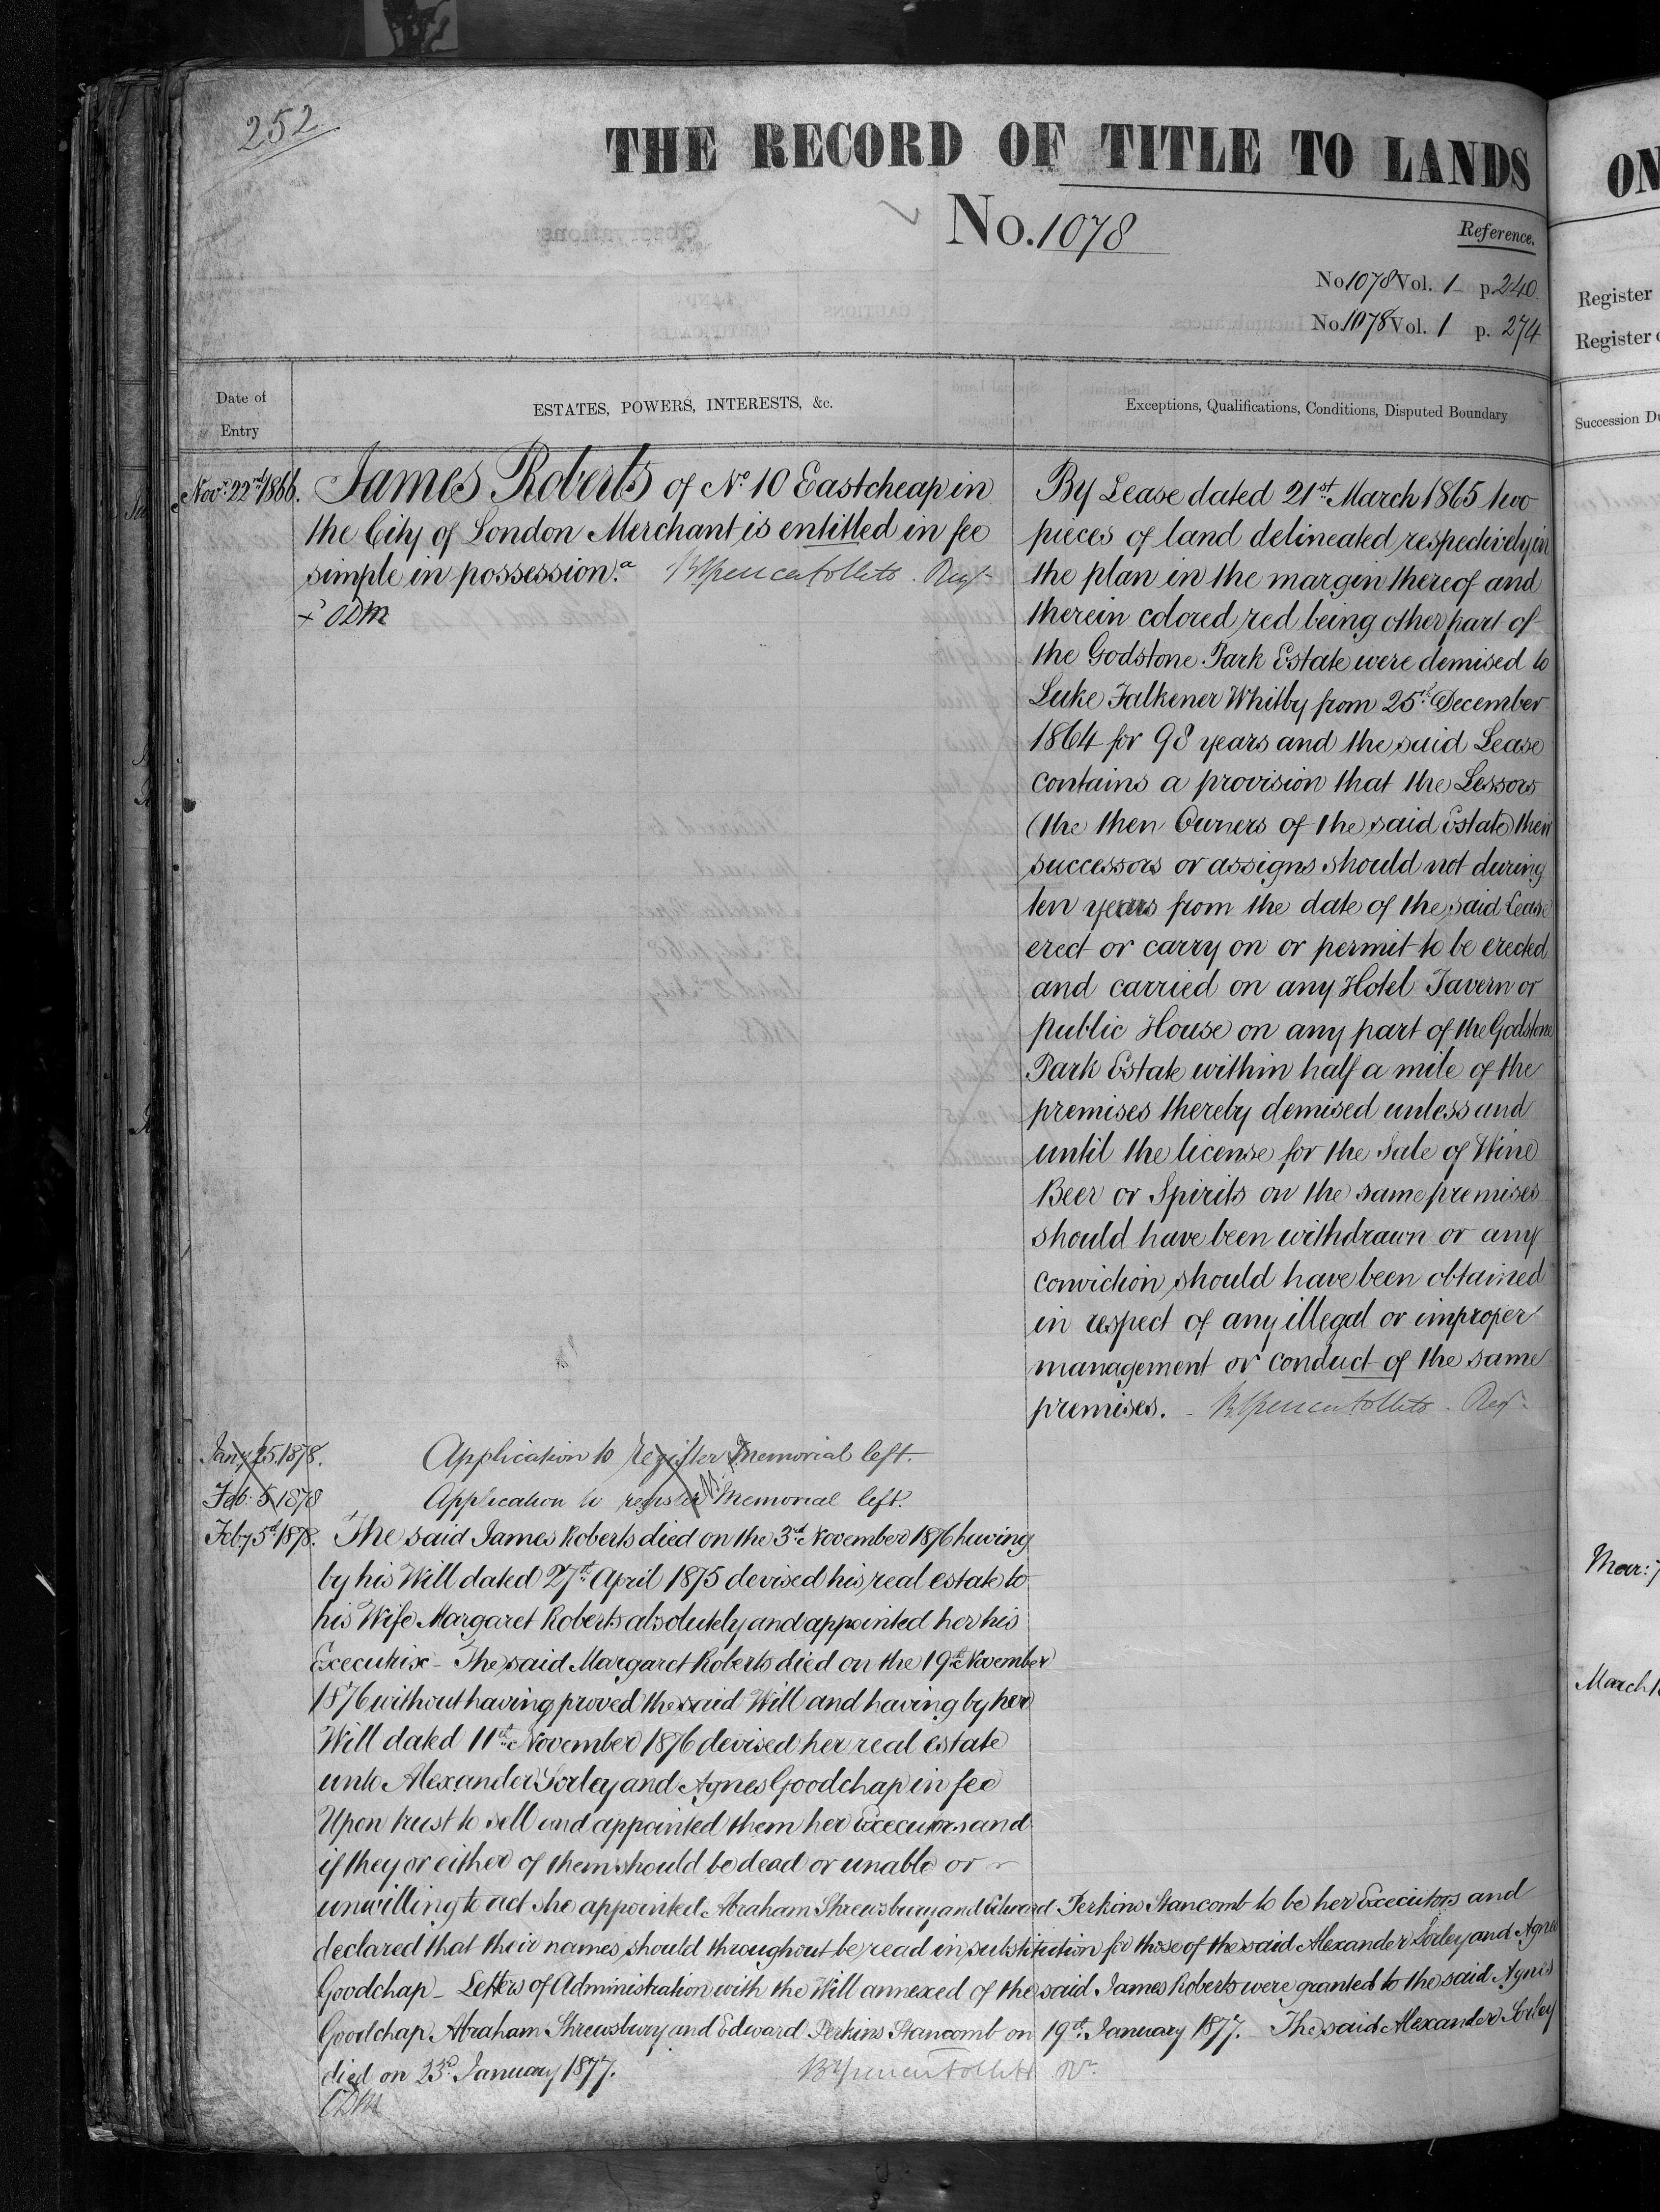 252
THE RECORD OF TITLE TO LANDS
No. 1078
Reference.
No 1078 Vol. 1 p. 240
No. 1078 Vol. 1 p. 274
Date of
Entry
ESTATES, POWERS, INTERESTS, &c.
Exceptions, Qualifications, Conditions, Disputed Boundary
Novr. 22nd 1866.
James Roberts of No. 10 Eastcheap in
the City of London Merchant is entitled in fee
simple in possession.
By Lease dated 21st March 1865 two
pieces of land delineated respectively in
the plan in the margin thereof and
therein colored red being other part of
the Godstone Park Estate were demised to
Luke Falkener Whitby from 25th December
1864 for 98 years and the said Lease
contains a provision that the Lessors
(the then Owners of the said Estate) their
successors or assigns should not during
ten years from the date of the said Lease
erect or carry on or permit to be erected
and carried on any Hotel Tavern or
public House on any part of the Godstone
Park Estate within half a mile of the
premises thereby demised unless and
until the license for the Sale of Wine
Beer or Spirits on the same premises
should have been withdrawn or any
conviction should have been obtained
in respect of any illegal or improper
management or conduct of the same
premises.
Jany 25 1878. Application to register Memorial left.
Feb: 5 1878 Application to register Memorial left.
Feby 5th 1878. The said James Roberts died on the 3rd November 1876 having
by his Will dated 27th April 1875 devised his real estate to
his Wife Margaret Roberts absolutely and appointed her his
Executrix - The said Margaret Roberts died on the 19th November
1876 without having proved the said Will and having by her
Will dated 11th November 1876 devised her real estate
unto Alexander Sorley and Agnes Goodchap in fee
Upon trust to sell and appointed them her Executors and
if they or either of them should be dead or unable or
unwilling to act she appointed Abraham Shrewsbury and Edward Perkins Stancomb to be her Executors and
declared that their names should throughout be read in substitution for those of the said Alexander Sorley and Agnes
Goodchap - Letters of Administration with the Will annexed of the said James Roberts were granted to the said Agnes
Goodchap Abraham Shrewsbury and Edward Perkins Stancomb on 19th January 1877. The said Alexander Sorley
died on 23rd January 1877.
ON
Register
Register
Succession Du
Mar: 7
March 1